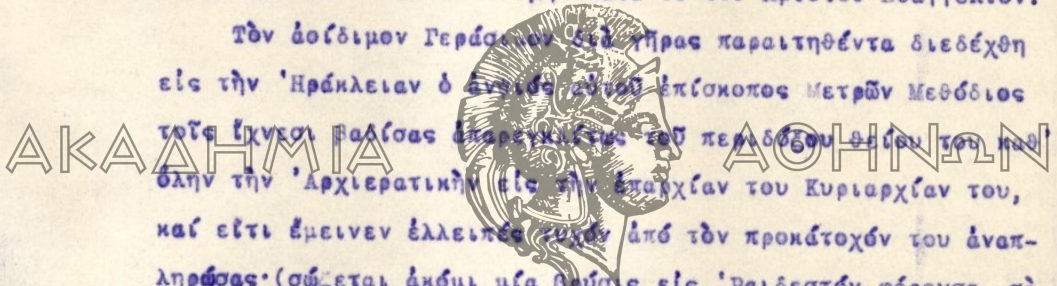 Χριστοῦ Εὐαγγέλιον.
Τὸν ἀοίδιμον Γεράσιμον διὰ γῆρας παραιτηθέντα διεδέχθη
εἰς τὴν Ἡράκλειαν ὁ ἀνεψιός αὐτοῦ ἐπίσκοπος Μετρῶν Μεθόδιος
τοῖς ἴχνεσι βαδίσας ἀπαρεγκλίτως τοῦ περιδόξου θείου του καθ'
ΑΚΑΔΗΜΙΑ ΑΘΗΝΩΝ
ὅλην τὴν Ἀρχιερατικὴν εἰς τὴν ἐπαρχίαν του Κυριαρχίαν του,
καί εἴτι ἔμεινεν ἐλλειπές τυχόν ἀπό τὸν προκάτοχόν του ἀναπ-
ληρώσας·(σώζεται ἀκόμι μία βρύσις εἰς Ῥαιδεστόν φέρουσα